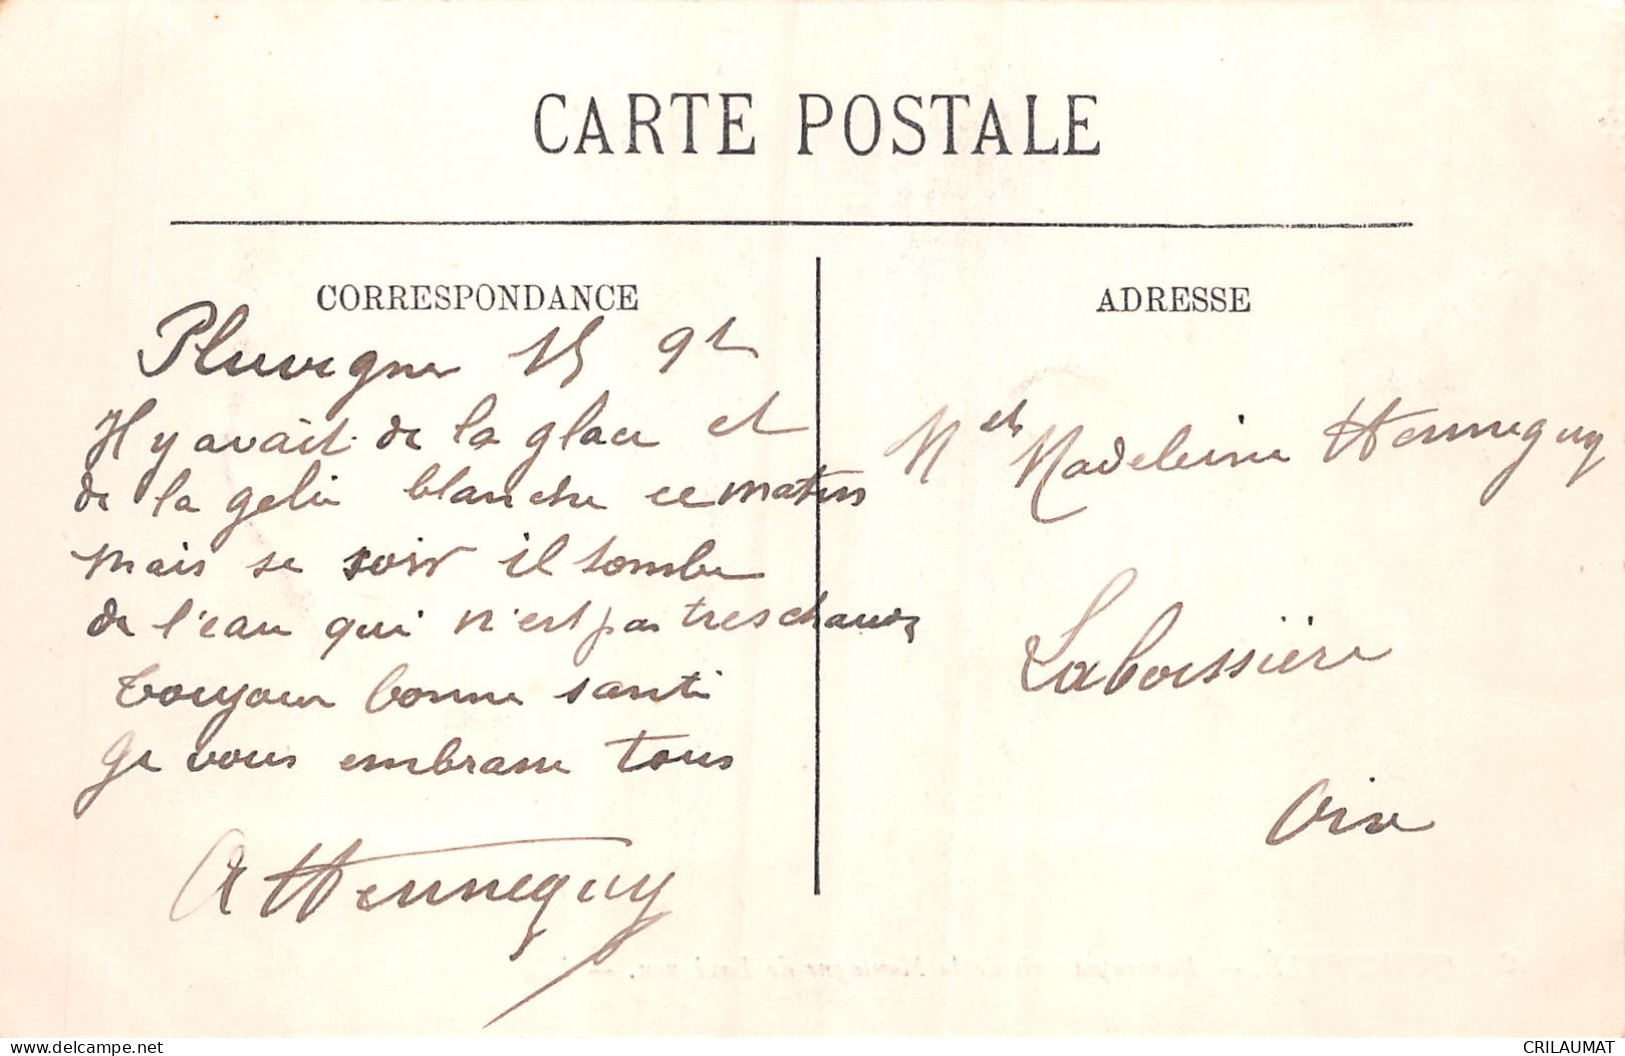 CARTE POSTALE
CORRESPONDANCE
ADRESSE
Pluvigner 15 9br
Il y avait de la glace et
de la gelée blanche ce matin
mais se soir il tombe
de l'eau qui n'est pas tres chaude
toujour bonne santé
Je vous embrasse tous
A Hennequy
Melle Madeleine Hennequy
Laboissière
Oise
delcampe.net
CRILAUMAT